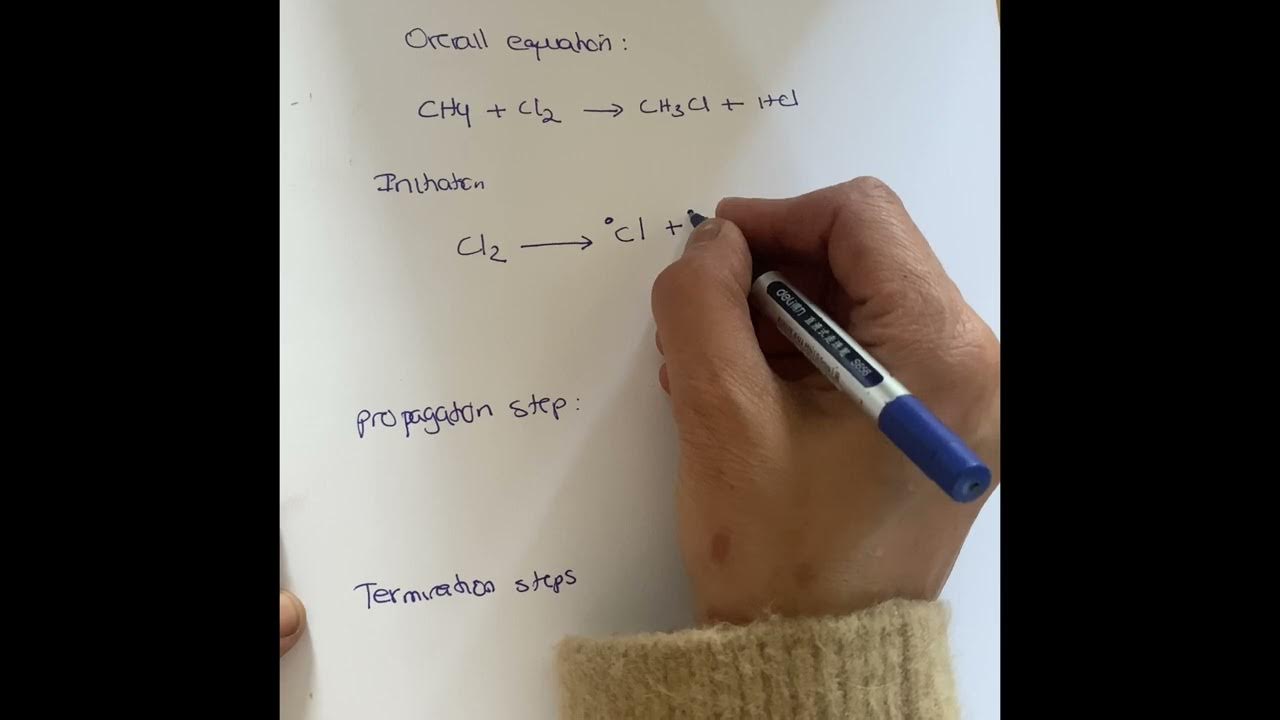 Overall equation:
CH4 + Cl2 → CH3Cl + HCl
Initiation
Cl2 → •Cl + •
propagation step:
Termination steps
deli
S656